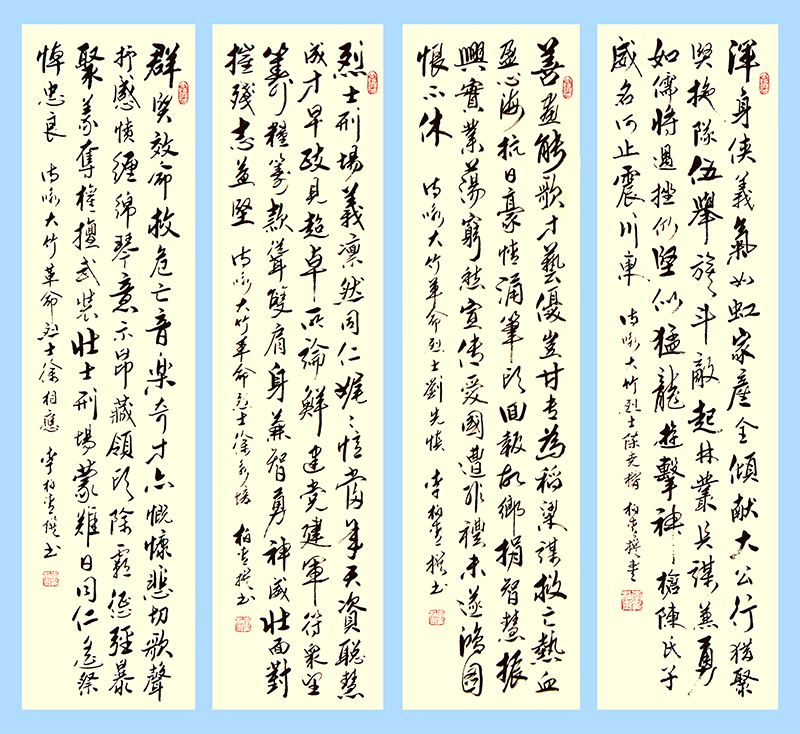 渾身俠義氣如虹家產全傾献大公行猶聚
賢挽隊伍舉旗斗敵起林叢具謀兼勇
如儒將遇挫仍堅似猛龍遊擊神槍陳氏子
威名何止震川東 詩詠大竹烈士陳克楷 柏青撰書
善畫能歌才藝優豈甘专為稻粱謀救亡熱血
盈心海抗日豪情涌筆头回報故鄉捐智慧振
興實業蕩窮愁宣传愛國遭非禮未遂鴻圖
恨不休 詩詠大竹革命烈士劉先慎 李柏青撰书
烈士刑場義凛然同仁娓娓憶當年天資聰慧
成才早政見超卓所論鮮建党建軍符衆望
籌糧籌款聳雙肩身兼智勇神威壯面對
摧殘志益堅 詩詠大竹革命烈士徐 柏青撰书
群賢效命救危亡音樂奇才亦慨慷悲切歌聲
抒感憤纏綿琴意示昂藏領头除霸懲强暴
聚義奪權擅武裝壯士刑場蒙難日同仁遥祭
悼忠良 詩詠大竹革命烈士徐相應 李柏青撰书